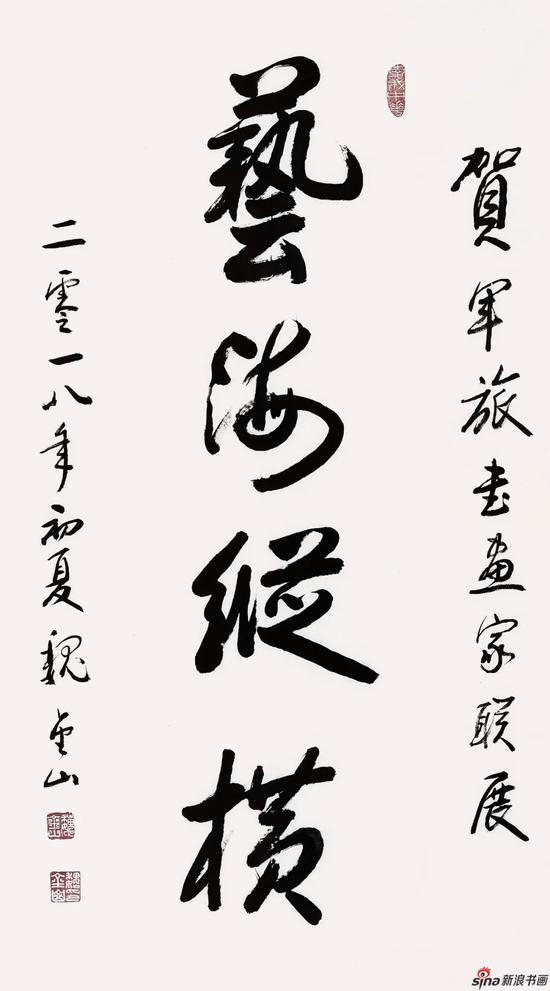 賀軍旅书画家联展
藝海縱橫
二零一八年初夏魏金山
sina新浪书画